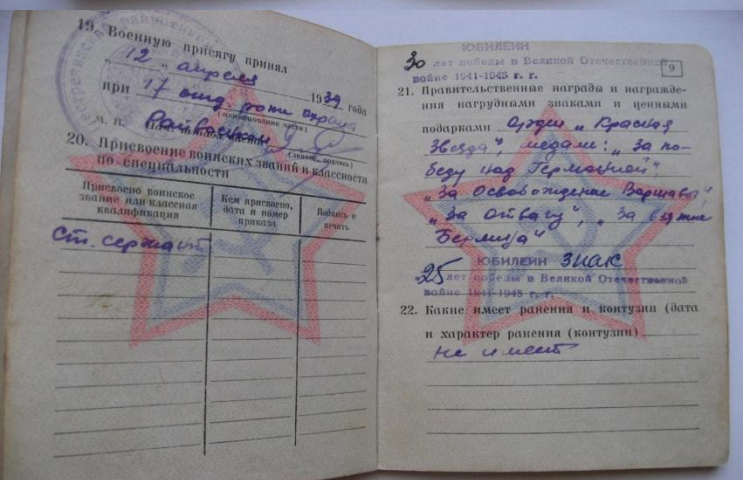 19. Военную присягу принял
„ 12 „ апреля 1939 года
при 17 отд. роти охраны
(наименование части)
М. П.
20. Присвоение воинских званий и классности
по специальности
Присвоено воинское
звание или классная
квалификация
Кем присвоено,
дата и номер
приказа
Подпись и
печать
Ст. сержант
ЮБИЛЕЙН
30 лет победы в Великой Отечественной
войне 1941-1945 г. г.
9
21. Правительственные награды и награжде-
ния нагрудными знаками и ценными
подарками Орден „Красная
Звезда", медали: „За по-
беду над Германией"
„За Освобождение Варшавы",
„За Отвагу", „За взятие
Берлина"
ЮБИЛЕЙН ЗНАК
25 лет победы в Великой Отечественной
войне 1941-1945 г. г.
22. Какие имеет ранения и контузии (дата
и характер ранения (контузии)
не имеет